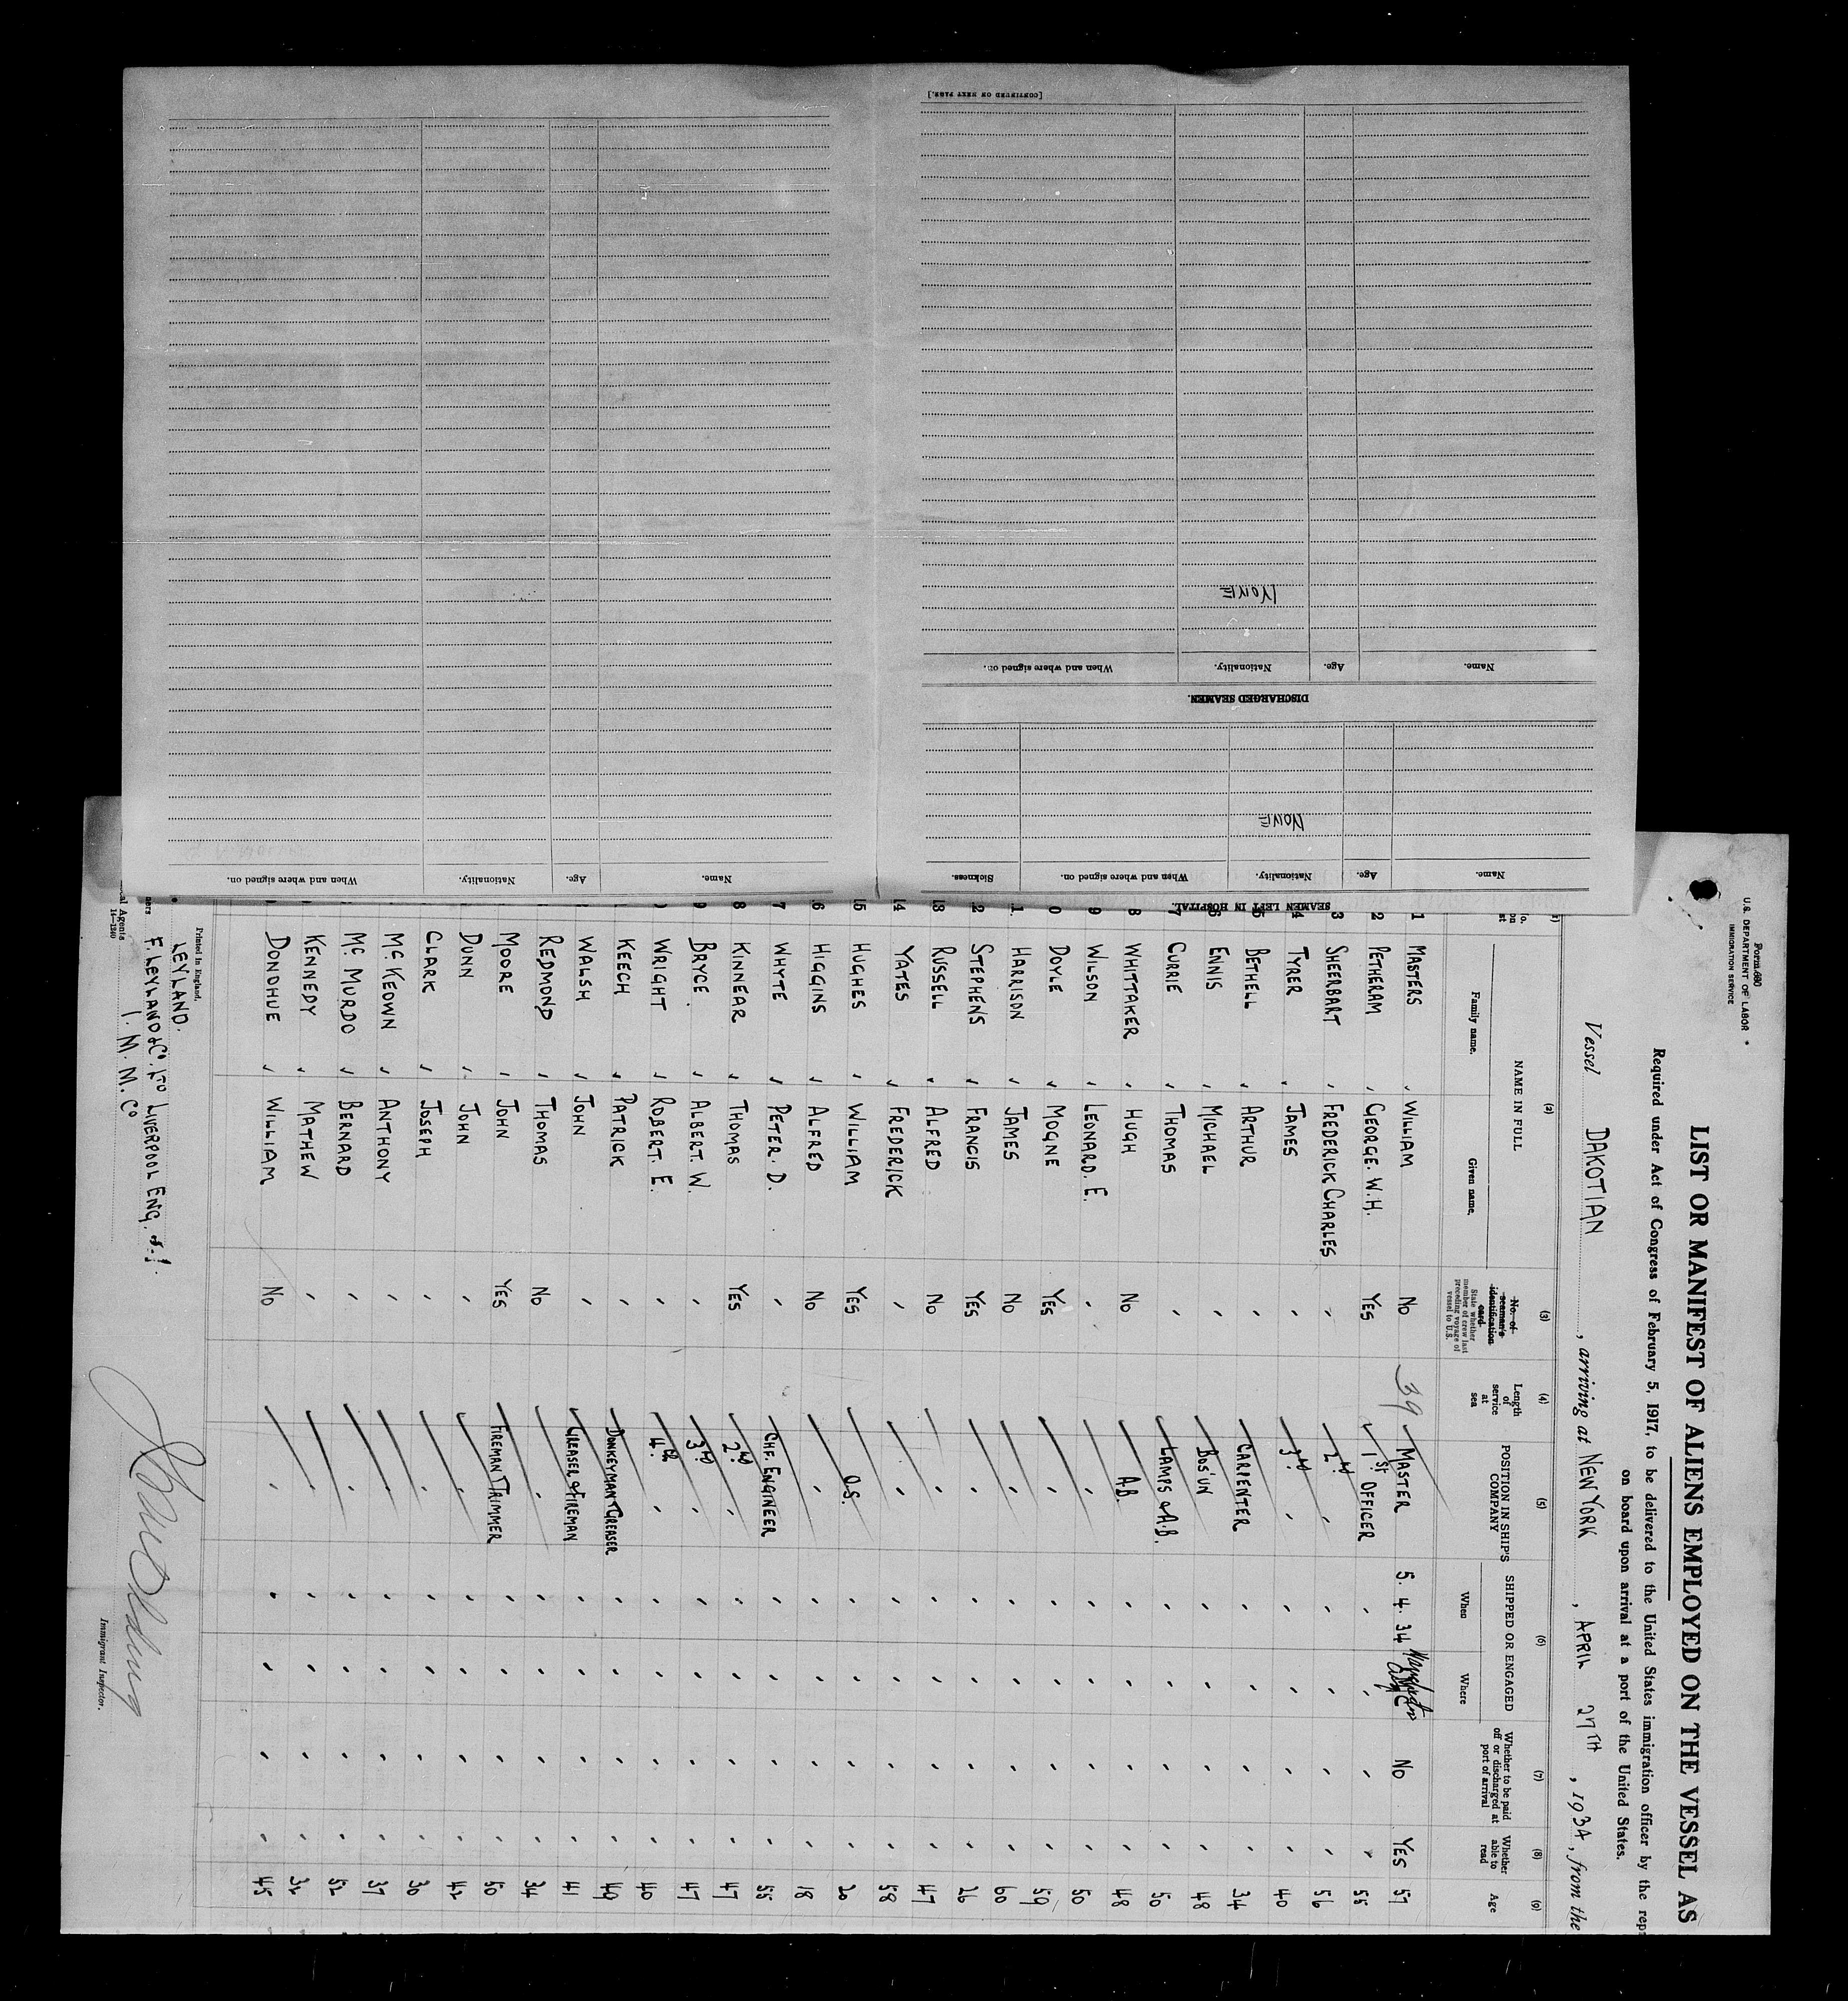 [CONTINUED ON NEXT PAGE.]
SEAMEN LEFT IN HOSPITAL.
Name. Age. Nationality. When and where signed on. Sickness.
NONE
DISCHARGED SEAMEN.
Name. Age. Nationality. When and where signed on.
NONE
Name. Age. Nationality. When and where signed on.
Form 680
U. S. DEPARTMENT OF LABOR
IMMIGRATION SERVICE
LIST OR MANIFEST OF ALIENS EMPLOYED ON THE VESSEL AS
Required under Act of Congress of February 5, 1917, to be delivered to the United States immigration officer by the repr
on board upon arrival at a port of the United States.
Vessel DAKOTIAN, arriving at NEW YORK, APRIL 27TH, 1934, from the
(2) (3) (4) (5) (6) (7) (8) (9)
NAME IN FULL
Family name. Given name.
No. of seaman's identification card
State whether member of crew last preceding voyage of vessel to U.S.
Length of service at sea
POSITION IN SHIP'S COMPANY
SHIPPED OR ENGAGED
When Where
Whether to be paid off or discharged at port of arrival
Whether able to read
Age
1 MASTERS WILLIAM NO 39 MASTER 5. 4. 34 NO YES 57
2 PETHERAM GEORGE. W. H. YES 1ST OFFICER 55
3 SHEERBART FREDERICK CHARLES 2ND 56
4 TYRER JAMES 3RD 40
5 BETHELL ARTHUR CARPENTER 34
6 ENNIS MICHAEL BOS'UN 48
7 CURRIE THOMAS LAMPS & A.B. 50
8 WHITTAKER HUGH NO A.B. 48
9 WILSON LEONARD. E. 50
0 DOYLE MOGNE YES 59
1 HARRISON JAMES NO 60
12 STEPHENS FRANCIS YES 26
13 RUSSELL ALFRED NO 47
14 YATES FREDERICK 58
15 HUGHES WILLIAM YES O.S. 20
6 HIGGINS ALFRED NO 18
7 WHYTE PETER. D. CHF. ENGINEER 55
8 KINNEAR THOMAS YES 2ND 47
9 BRYCE ALBERT. W. 3RD 47
WRIGHT ROBERT. E. 4TH 40
KEECH PATRICK DONKEYMAN & GREASER 49
WALSH JOHN GREASER & FIREMAN 41
REDMOND THOMAS NO 34
MOORE JOHN YES FIREMAN & TRIMMER 50
DUNN JOHN 42
CLARK JOSEPH 30
Mc. KEOWN ANTHONY 37
Mc. MURDO BERNARD 52
KENNEDY MATHEW 32
DONOHUE WILLIAM NO 45
Printed in England.
LEYLAND.
ners F. LEYLAND & Co. LTD LIVERPOOL ENG.
al Agents I. M. M. Co
14—1240
Immigrant Inspector.